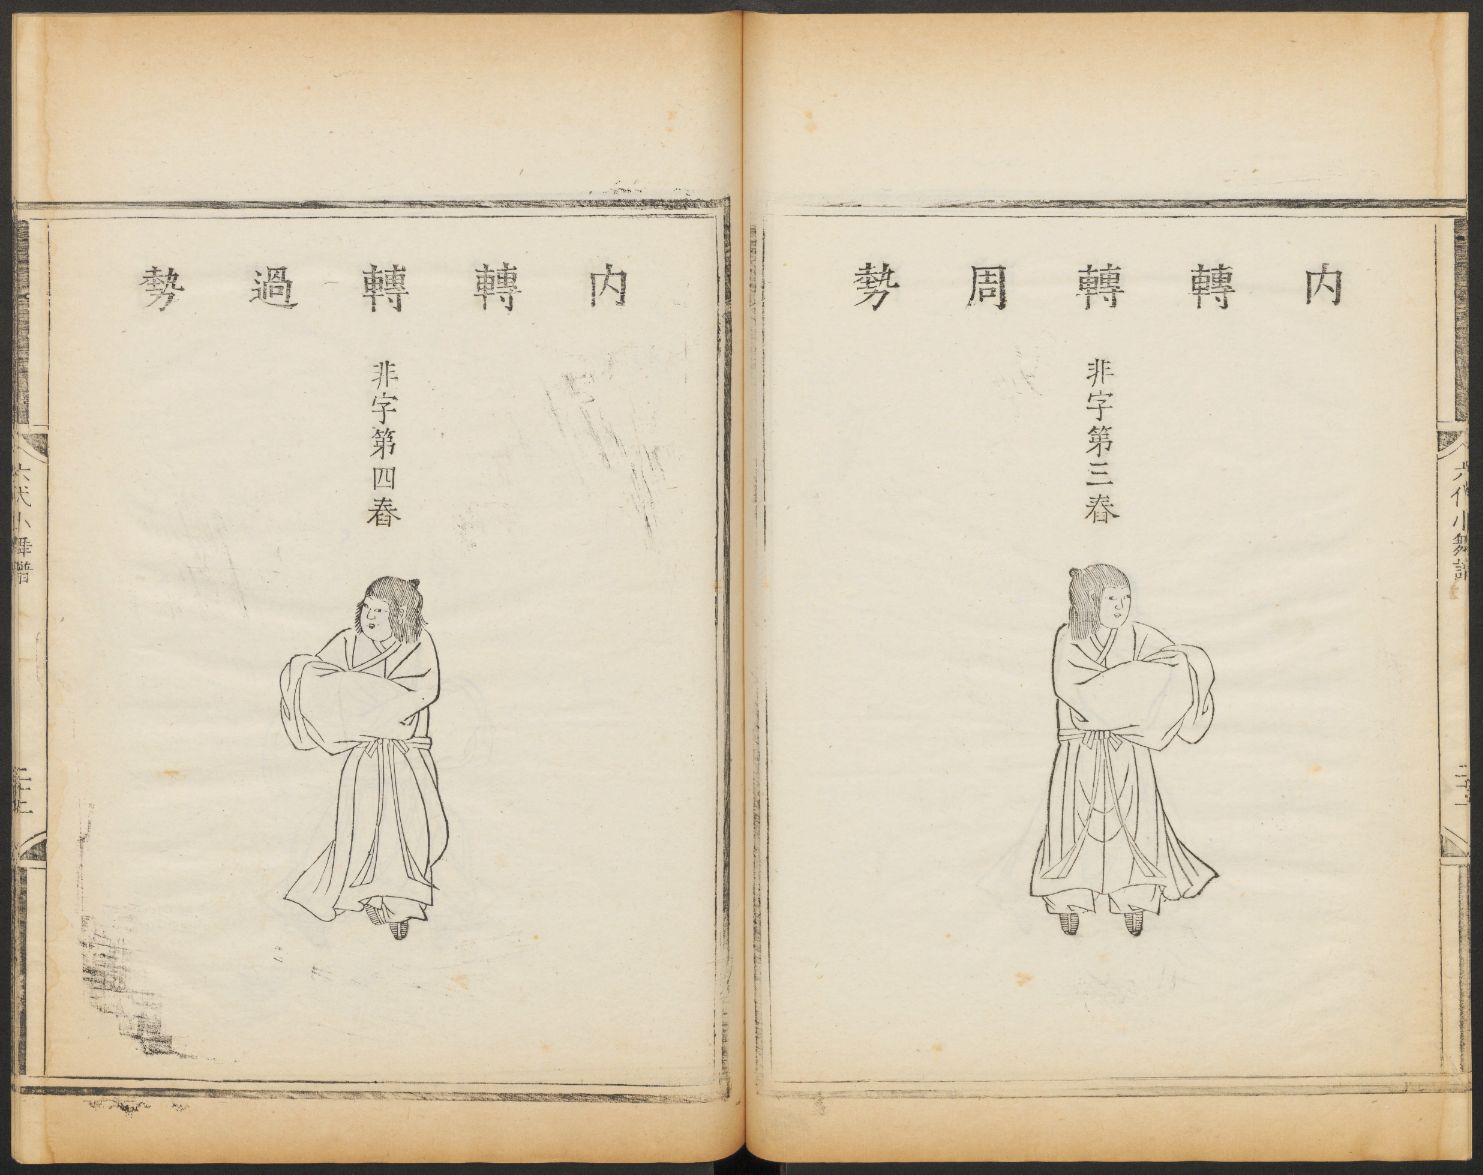 內轉轉周勢
非字第三舂
六代小舞譜
內轉轉過勢
非字第四舂
六代小舞譜